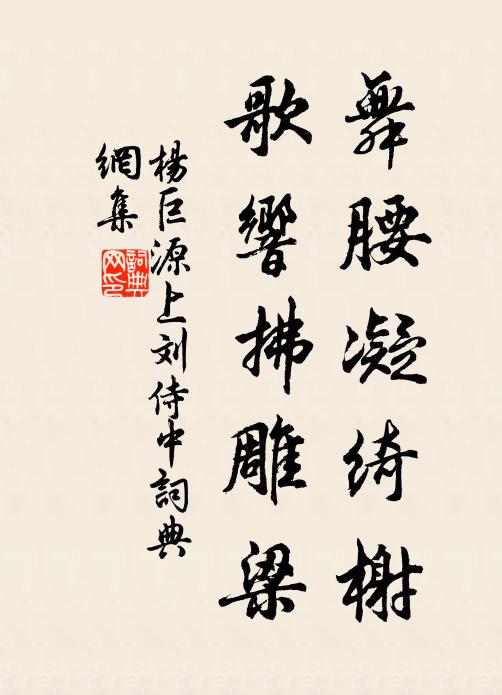 舞腰凝绮榭
歌響拂雕梁
楊巨源上刘侍中詞典
網集
詞典
网印